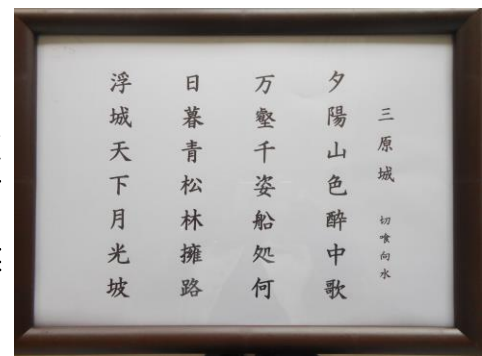 三原城 切喰向水
夕陽山色酔中歌
万壑千姿船処何
日暮青松林擁路
浮城天下月光坡